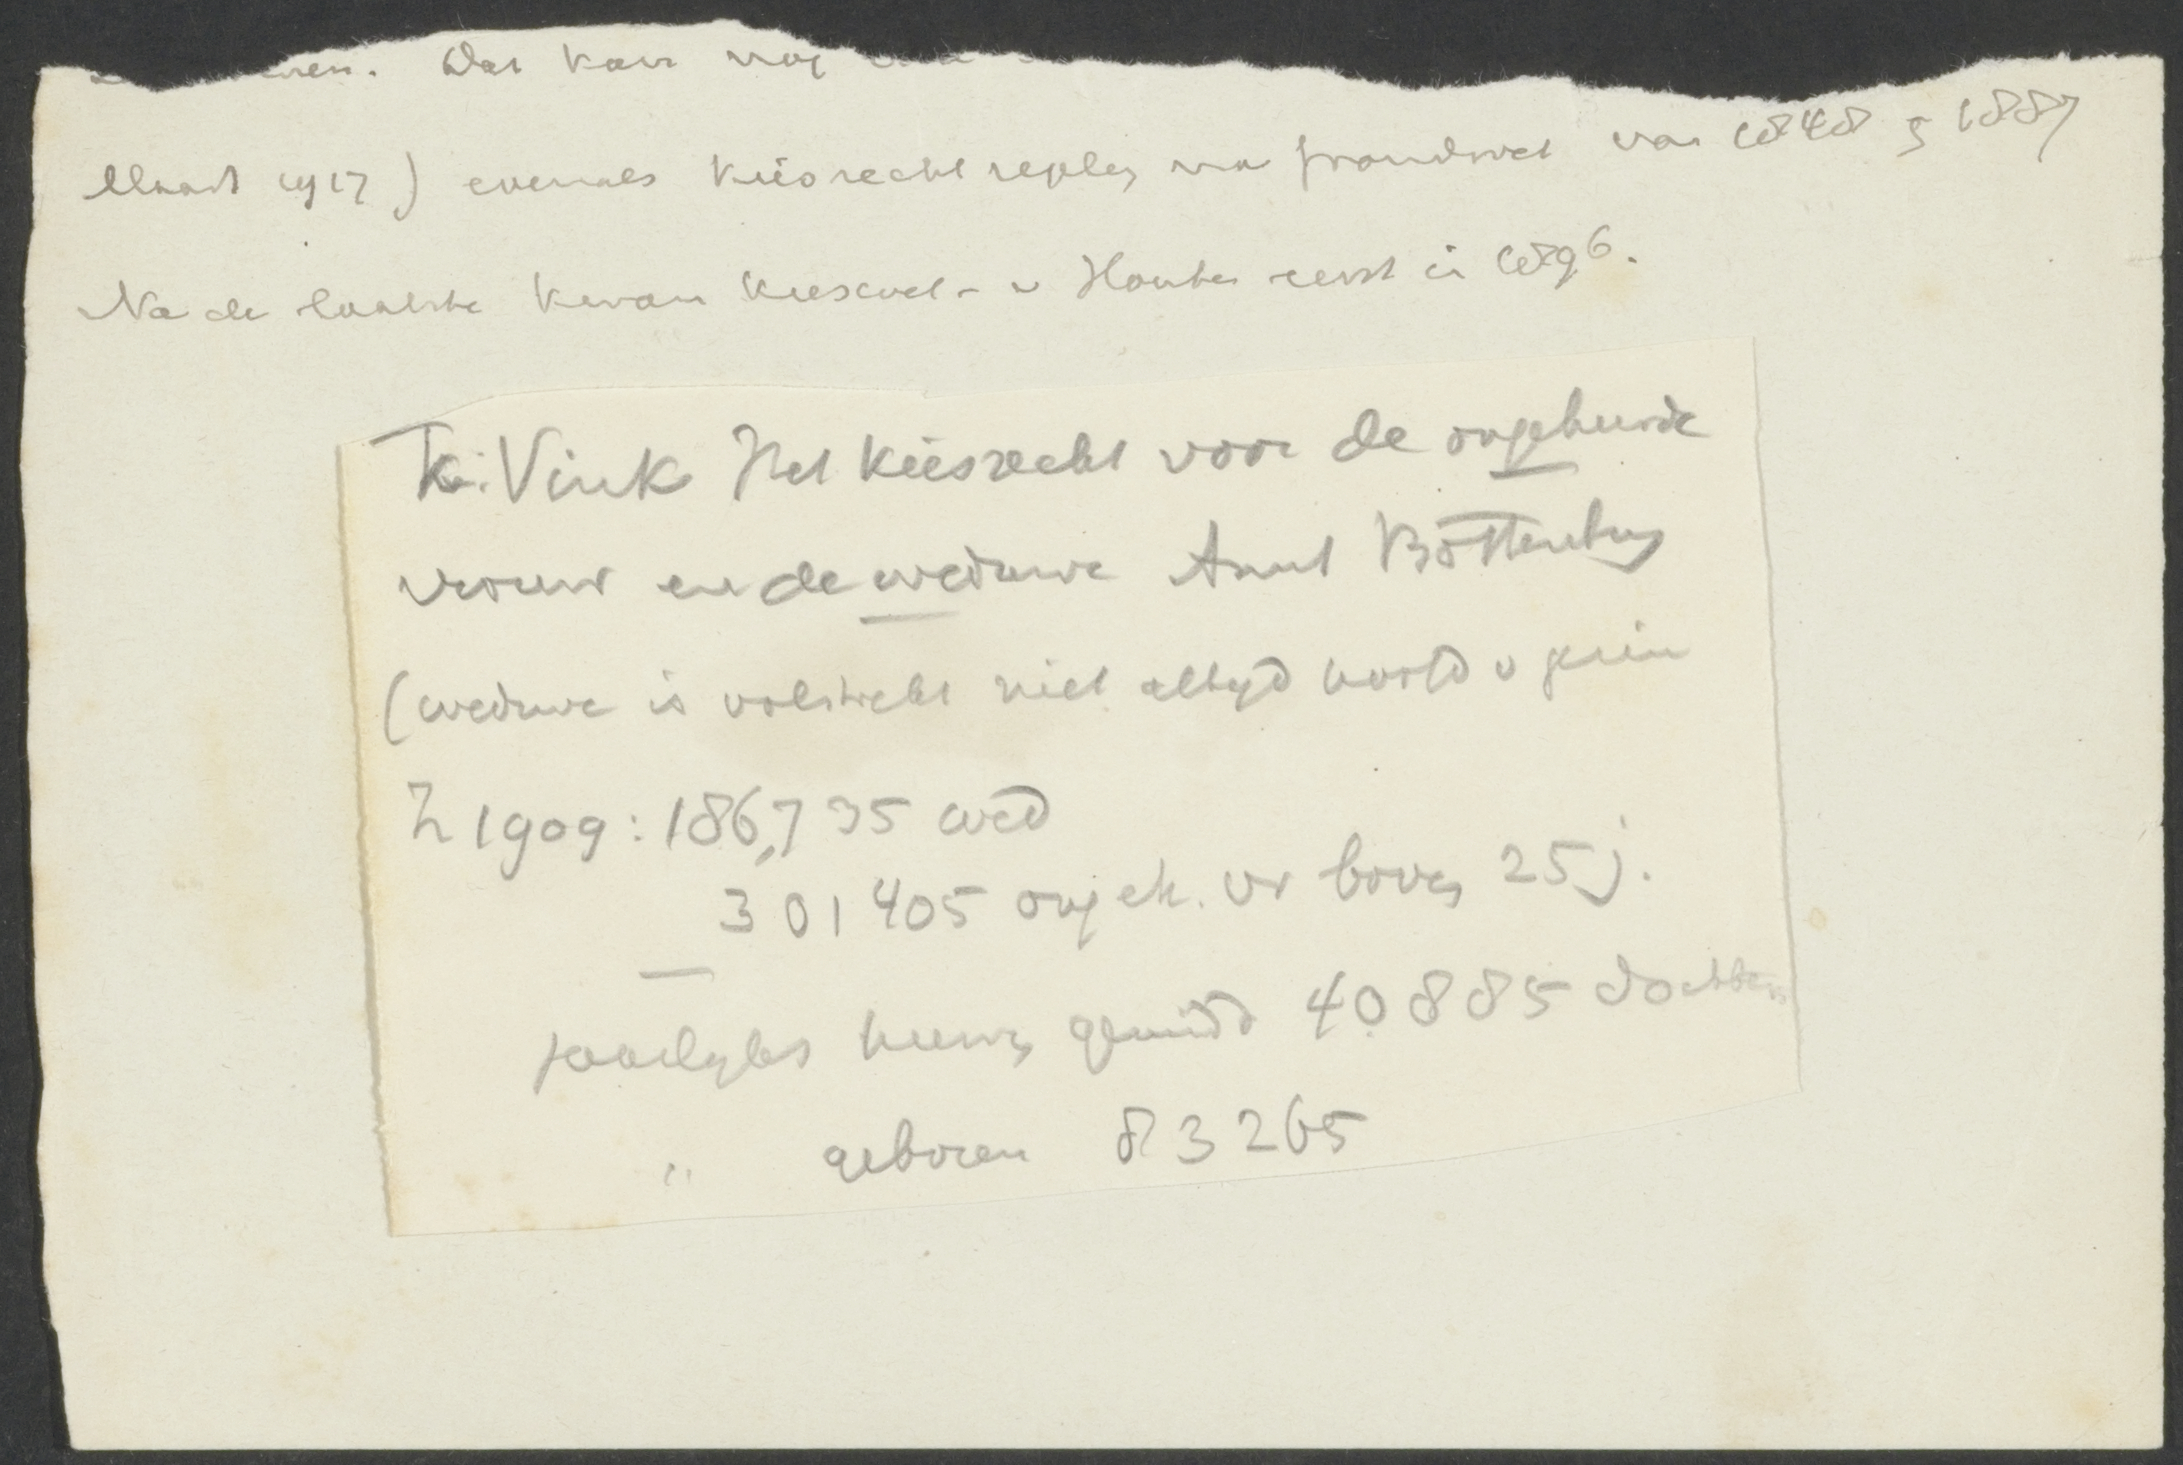 Dat kan nog
Maart 1917) evenals kiesrecht regeling na grondwet van 1848 & 1887
Na de laatste kwam kieswet - v Houten eerst in 1896.
Vink Het kiesrecht voor de ongehuwde
vrouw en de weduwe Amst Böttenburg
(weduwe is volstrekt niet altyd hoofd v gezin
1909: 186,735 wed
301405 ongeh. vr boven 25 j.
jaarlyks huwen gemidd 40885 dochters
" geboren 83265